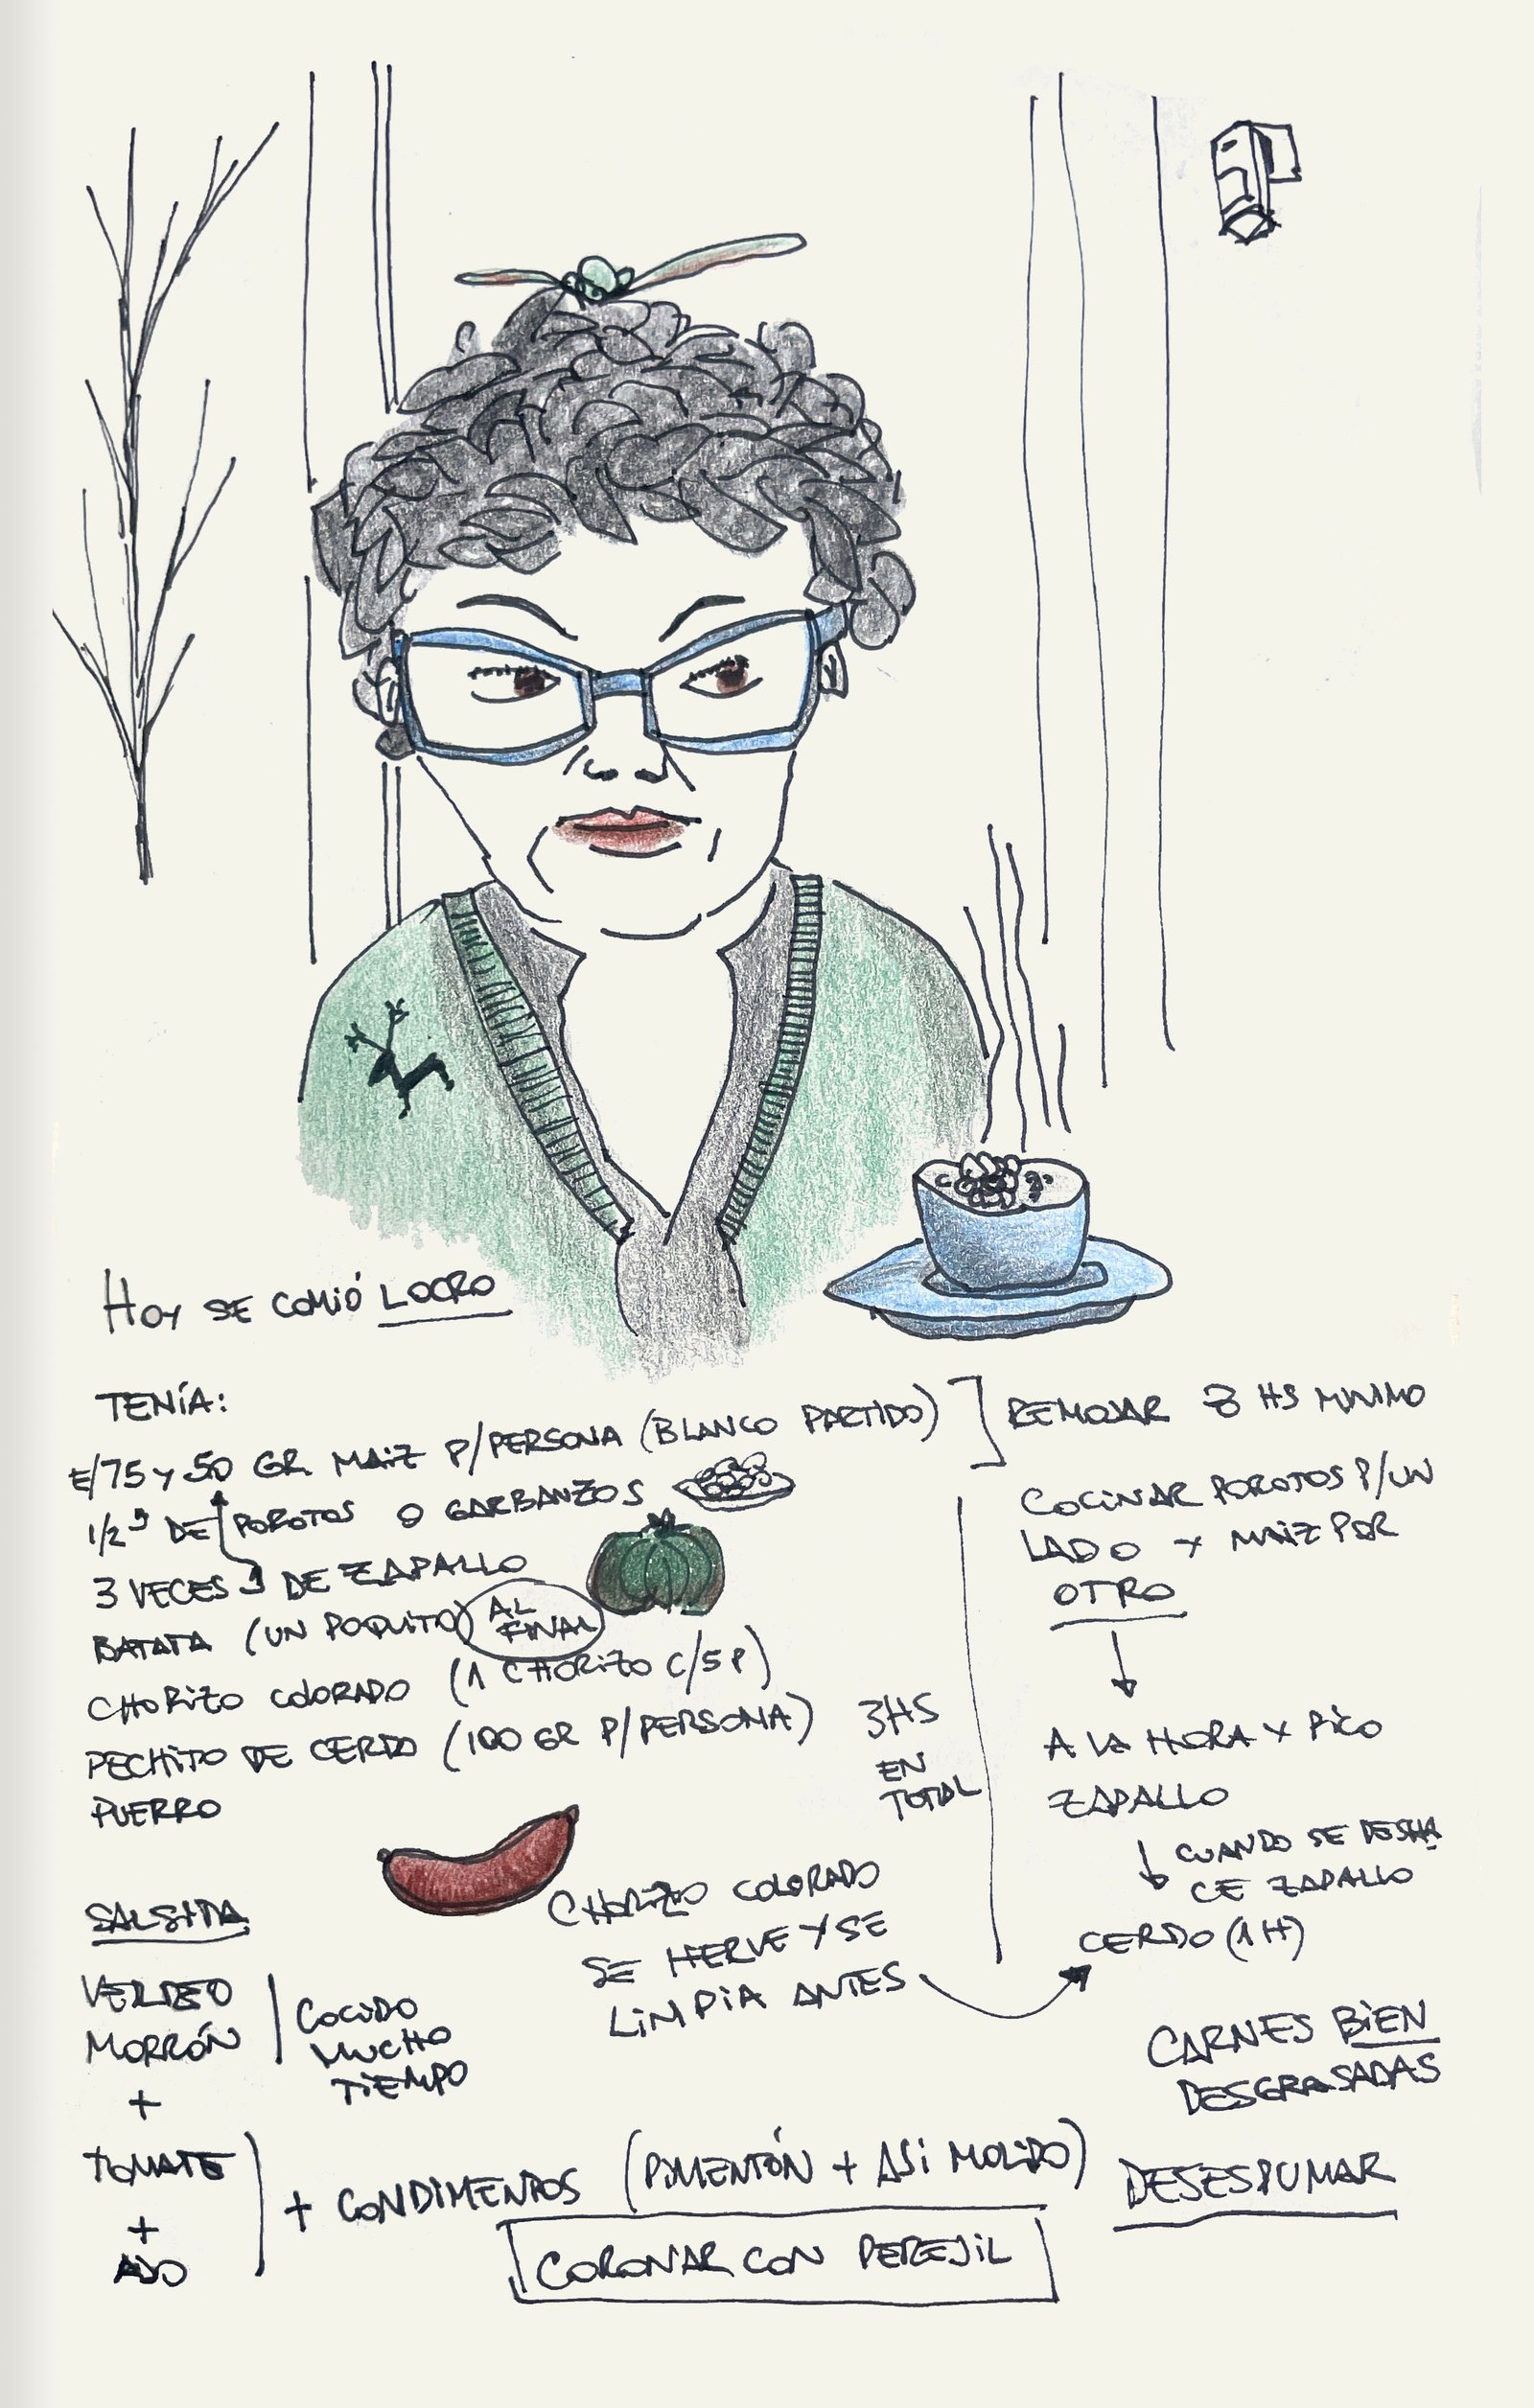 HOY SE COMIÓ LOCRO
TENÍA:
E/75 Y 50 GR MAIZ P/PERSONA (BLANCO PARTIDO)
1/2 DE POROTOS O GARBANZOS
3 VECES DE ZAPALLO
BATATA (UN POQUITO) AL FINAL
CHORIZO COLORADO (1 CHORIZO C/5 P)
PECHITO DE CERDO (100 GR P/PERSONA)
PUERRO
3 HS
EN
TOTAL
REMOJAR 8 HS MINIMO
COCINAR POROTOS P/UN
LADO Y MAIZ POR
OTRO
A LA HORA Y PICO
ZAPALLO
CUANDO SE DESHA
CE ZAPALLO
CERDO (1 H)
CHORIZO COLORADO
SE HIERVE Y SE
LIMPIA ANTES
CARNES BIEN
DESGRASADAS
DESESPUMAR
SALSITA
VERDEO
MORRÓN
COCIDO
MUCHO
TIEMPO
+
TOMATE
+
AJO
+ CONDIMENTOS (PIMENTÓN + AJI MOLIDO)
CORONAR CON PEREJIL